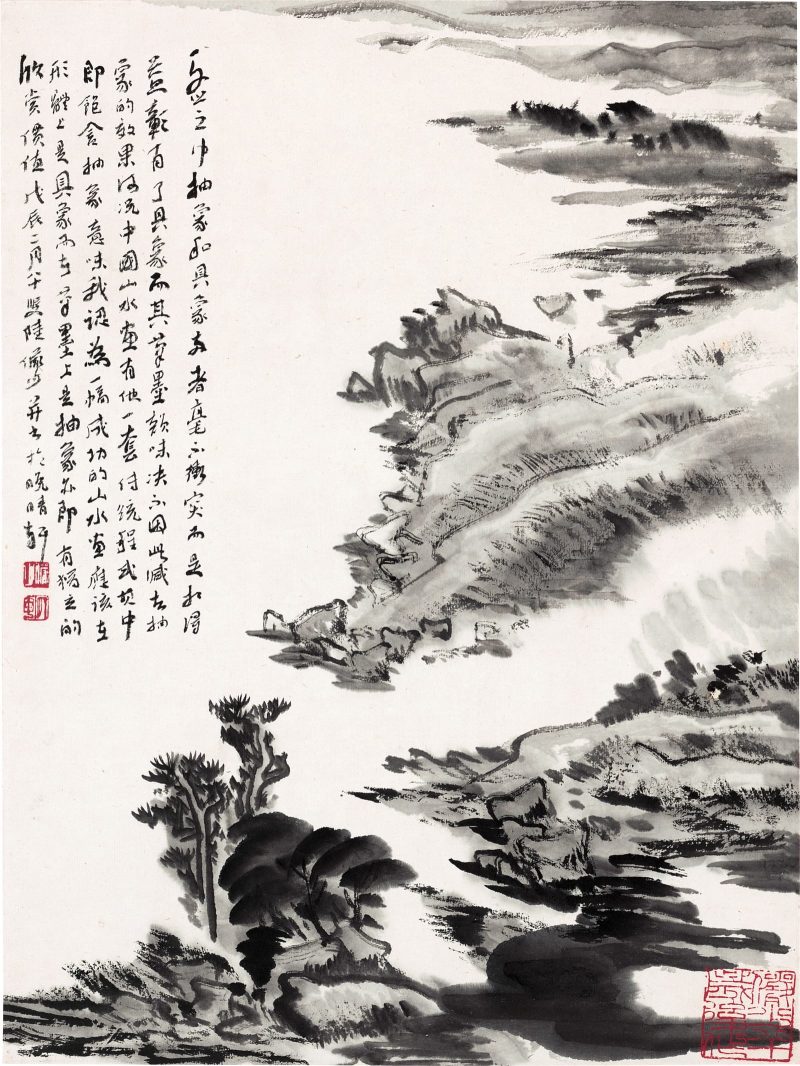 之中抽象和具象兩者毫不衝突而是相得
益彰有了具象而其筆墨韻味決不因此減去抽
象的效果何況中國山水畫有他一套傳統程式其中
即飽含抽象意味我認為一幅成功的山水畫應該在
形體上是具象而在筆墨上是抽象亦即有獨立的
欣賞價值戊辰二月八十叟陸儼少并書於晚晴軒